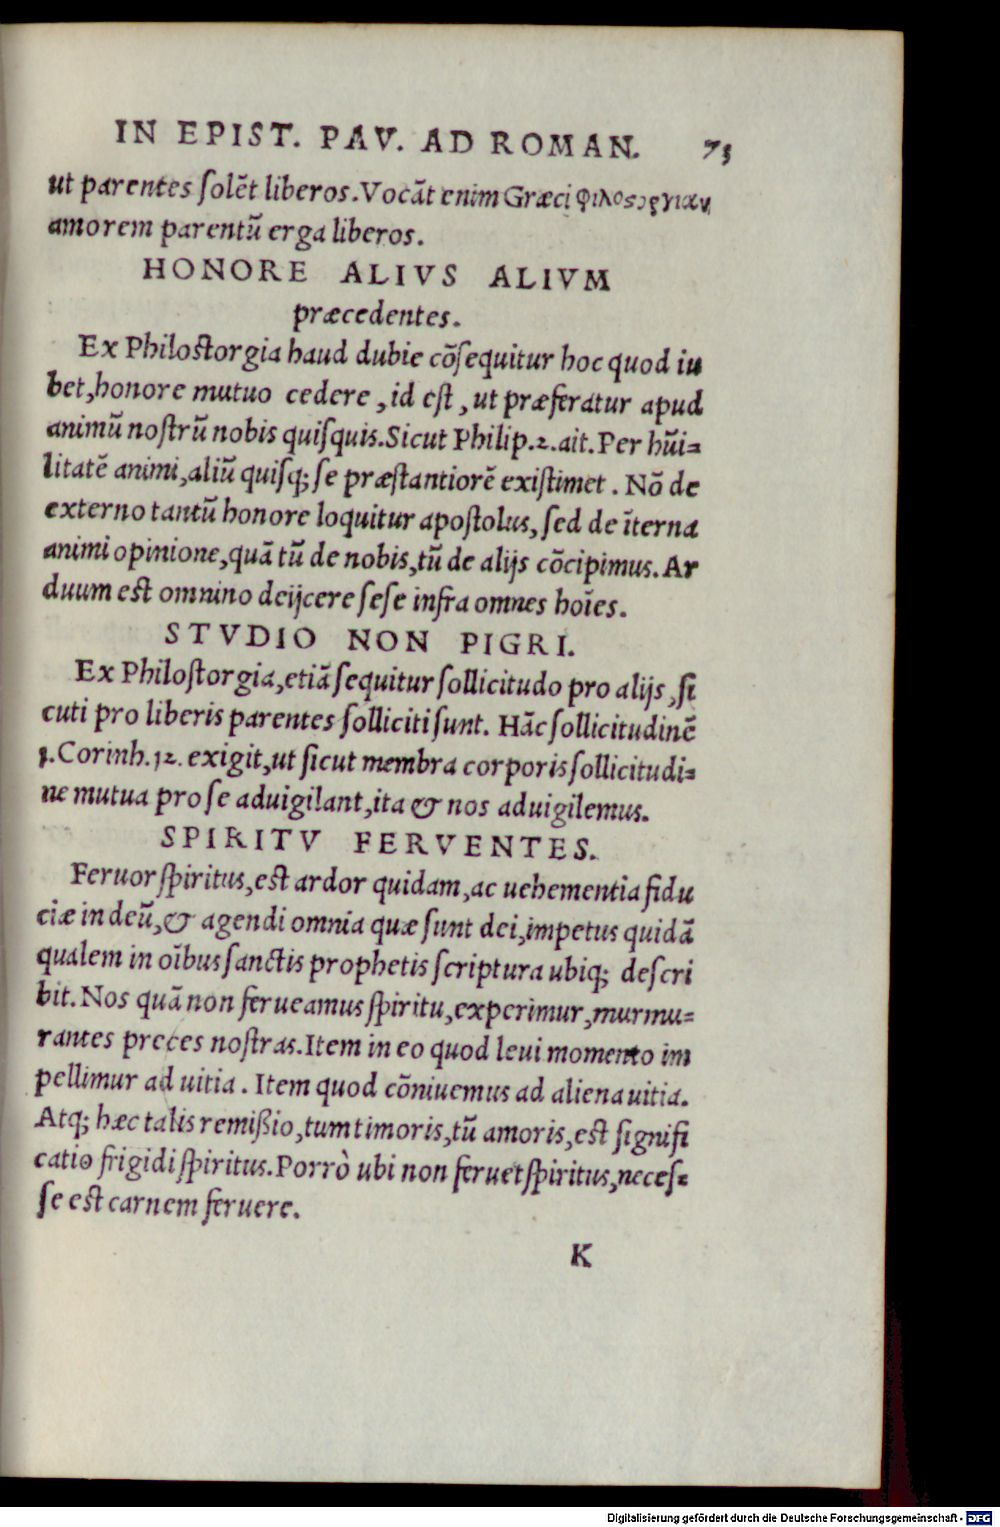 IN EPIST. PAV. AD ROMAN. 73
ut parentes ſolẽt liberos. Vocãt enim Græci φιλοϛοργιαν
amorem parentũ erga liberos.
HONORE ALIVS ALIVM
præcedentes.
Ex Philoſtorgia haud dubie cõſequitur hoc quod iu
bet, honore mutuo cedere, id eſt, ut præferatur apud
animũ noſtrũ nobis quiſquis. Sicut Philip. 2. ait. Per hũi-
litatẽ animi, aliũ quiſq; ſe præſtantiorẽ exiſtimet. Nõ de
externo tantũ honore loquitur apoſtolus, ſed de ĩterna
animi opinione, quã tũ de nobis, tũ de alijs cõcipimus. Ar
duum eſt omnino deijcere ſeſe infra omnes hoĩes.
STVDIO NON PIGRI.
Ex Philoſtorgia, etiã ſequitur ſollicitudo pro alijs, ſi
cuti pro liberis parentes ſolliciti ſunt. Hãc ſollicitudinẽ
1. Corinh. 12. exigit, ut ſicut membra corporis ſollicitudi-
ne mutua pro ſe aduigilant, ita & nos aduigilemus.
SPIRITV FERVENTES.
Feruor ſpiritus, eſt ardor quidam, ac uehementia fidu
ciæ in deũ, & agendi omnia quæ ſunt dei, impetus quidã
qualem in oĩbus ſanctis prophetis ſcriptura ubiq; deſcri
bit. Nos quã non ferueamus ſpiritu, experimur, murmu-
rantes preces noſtras. Item in eo quod leui momento im
pellimur ad uitia. Item quod cõniuemus ad aliena uitia.
Atq; hæc talis remißio, tum timoris, tũ amoris, eſt ſignifi
catio frigidi ſpiritus. Porrò ubi non feruet ſpiritus, neceſ-
ſe eſt carnem feruere.
K
Digitalisierung gefördert durch die Deutsche Forschungsgemeinschaft - DFG